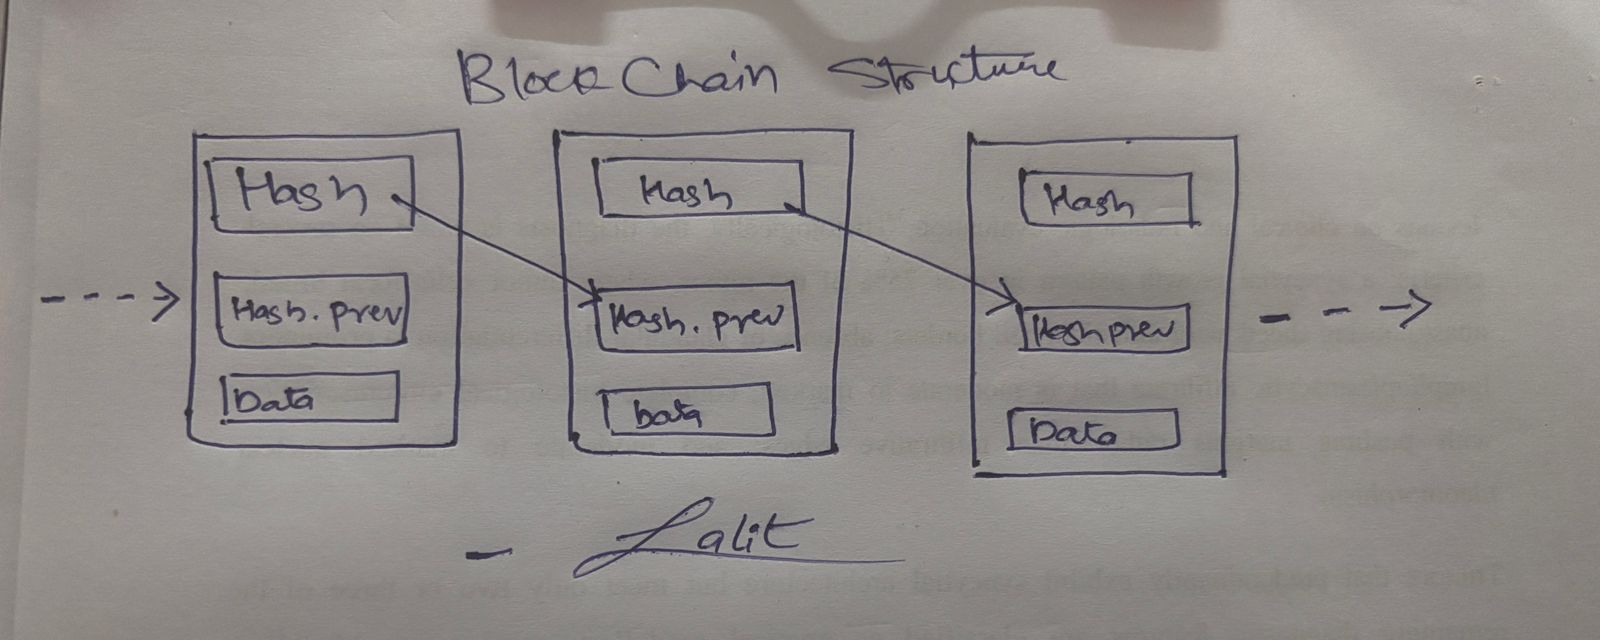 BlockChain Structure
Hash
Hash.prev
Data
Hash
Hash.prev
Data
Hash
Hashprev
Data
- Lalit